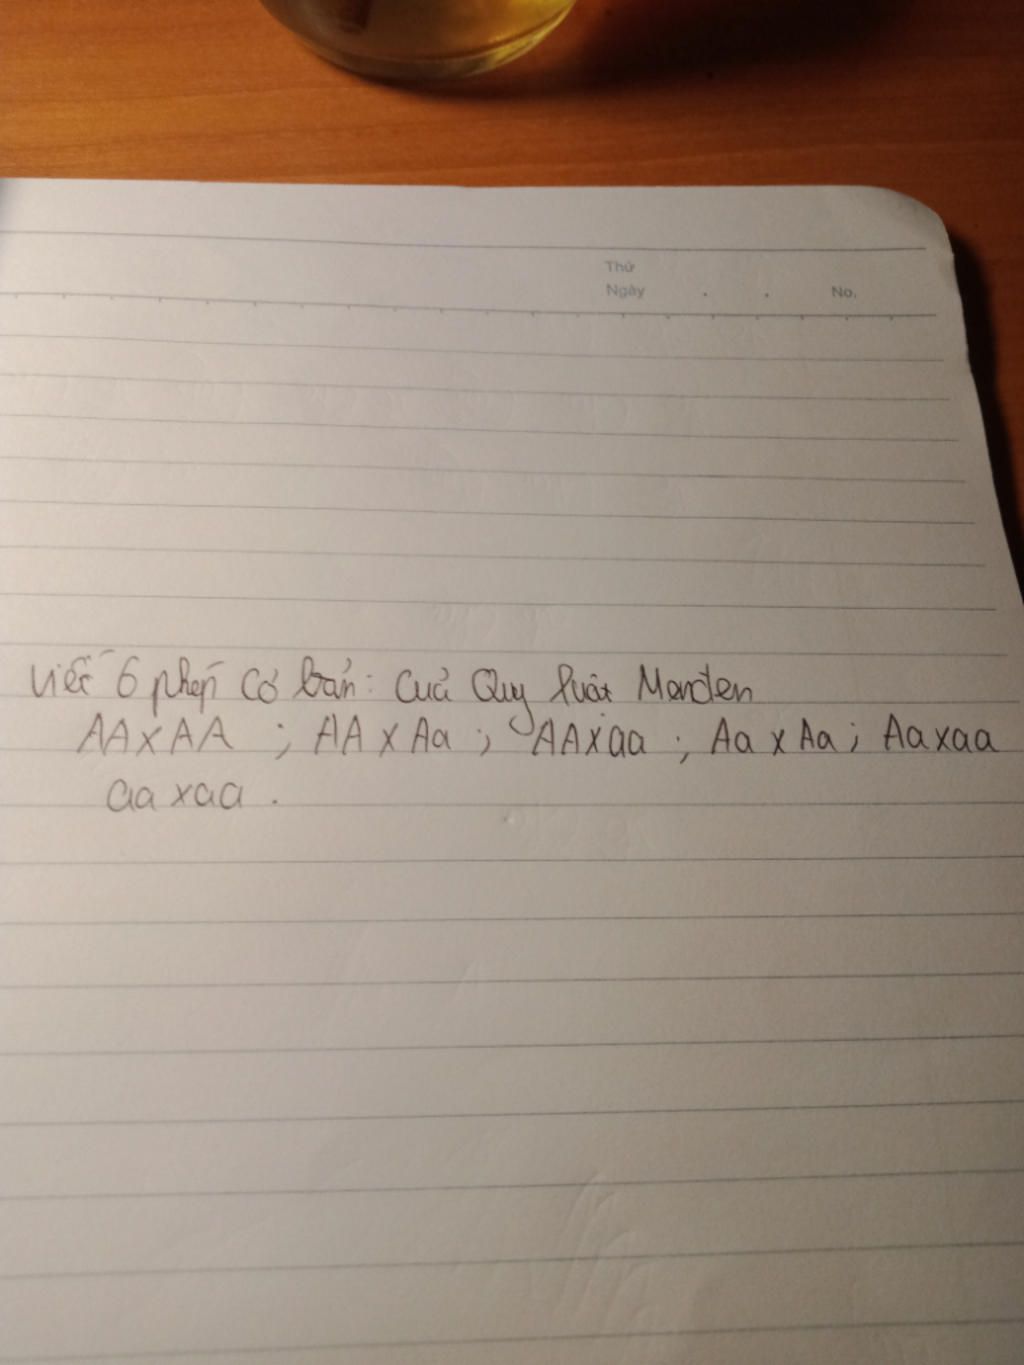 Thứ
Ngày . . No.
viết 6 phép cơ bản: của Quy luật Menđen
AA x AA ; AA x Aa ; AA x aa ; Aa x Aa ; Aa x aa
aa x aa .